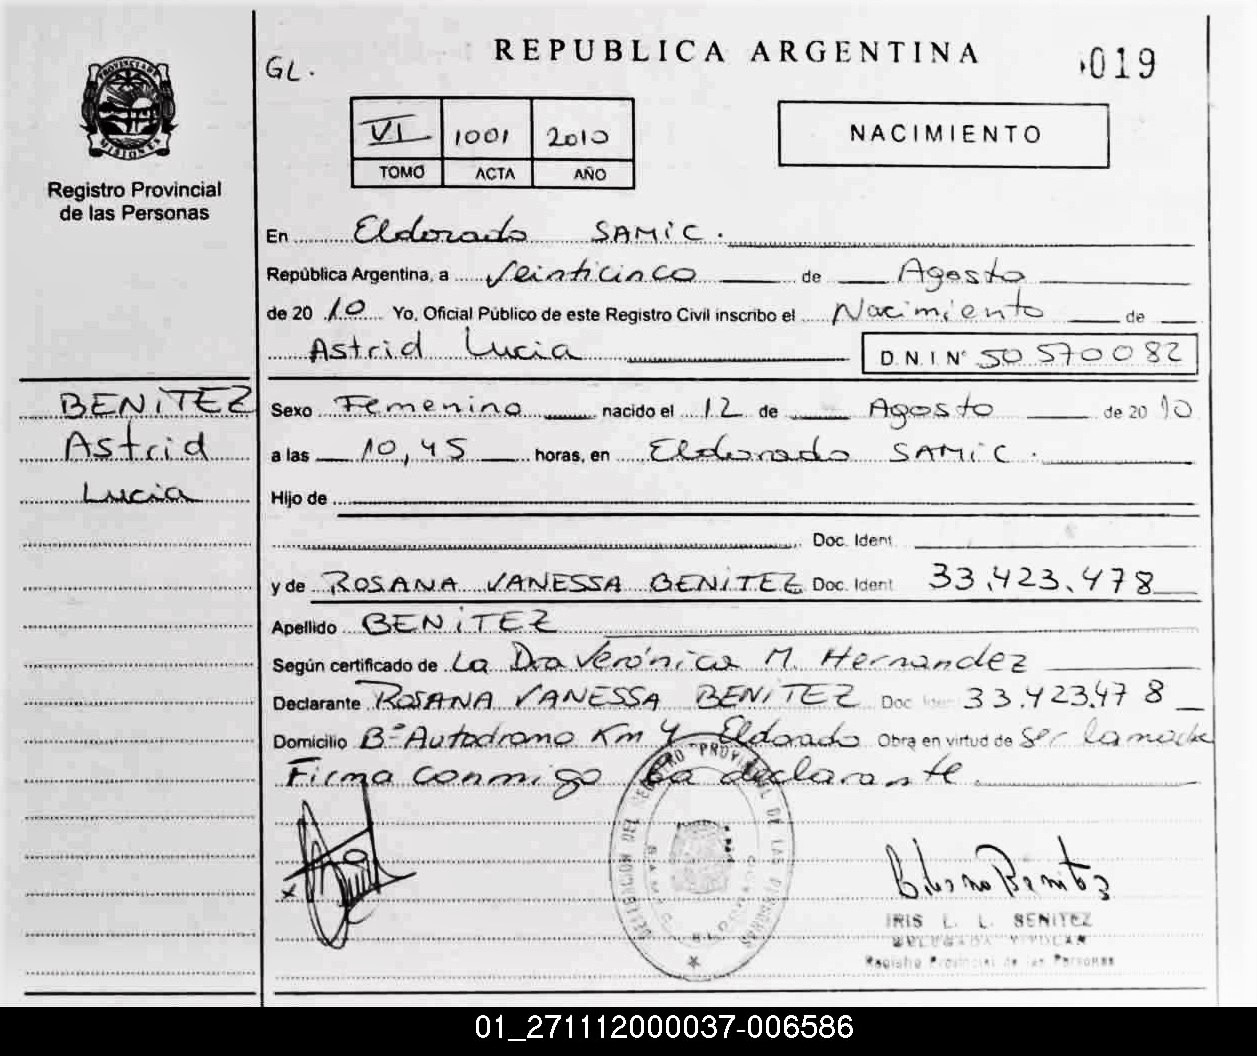 REPUBLICA ARGENTINA
GL.
019
PROVINCIA DE MISIONES
Registro Provincial
de las Personas
VI 1001 2010
TOMO ACTA AÑO
NACIMIENTO
En Eldorado SAMIC.
República Argentina, a Veinticinco de Agosto
de 2010 Yo, Oficial Público de este Registro Civil inscribo el Nacimiento de
Astrid Lucia D.N.I Nº 50 570 082
BENITEZ
Astrid
Lucia
Sexo Femenino nacido el 12 de Agosto de 2010
a las 10,45 horas, en Eldorado SAMIC.
Hijo de
Doc. Ident
y de ROSANA VANESSA BENITEZ Doc. Ident 33.423.478
Apellido BENITEZ
Según certificado de La Dra Verónica M. Hernandez
Declarante ROSANA VANESSA BENITEZ Doc Iden 33.423.478
Domicilio Bº Autodromo Km 4 Eldorado Obra en virtud de Ser la madre
Firma conmigo La declarante.
REGISTRO PROVINCIAL DE LAS PERSONAS
IRIS L. L. BENITEZ
Registro Provincial de las Personas
01_271112000037-006586